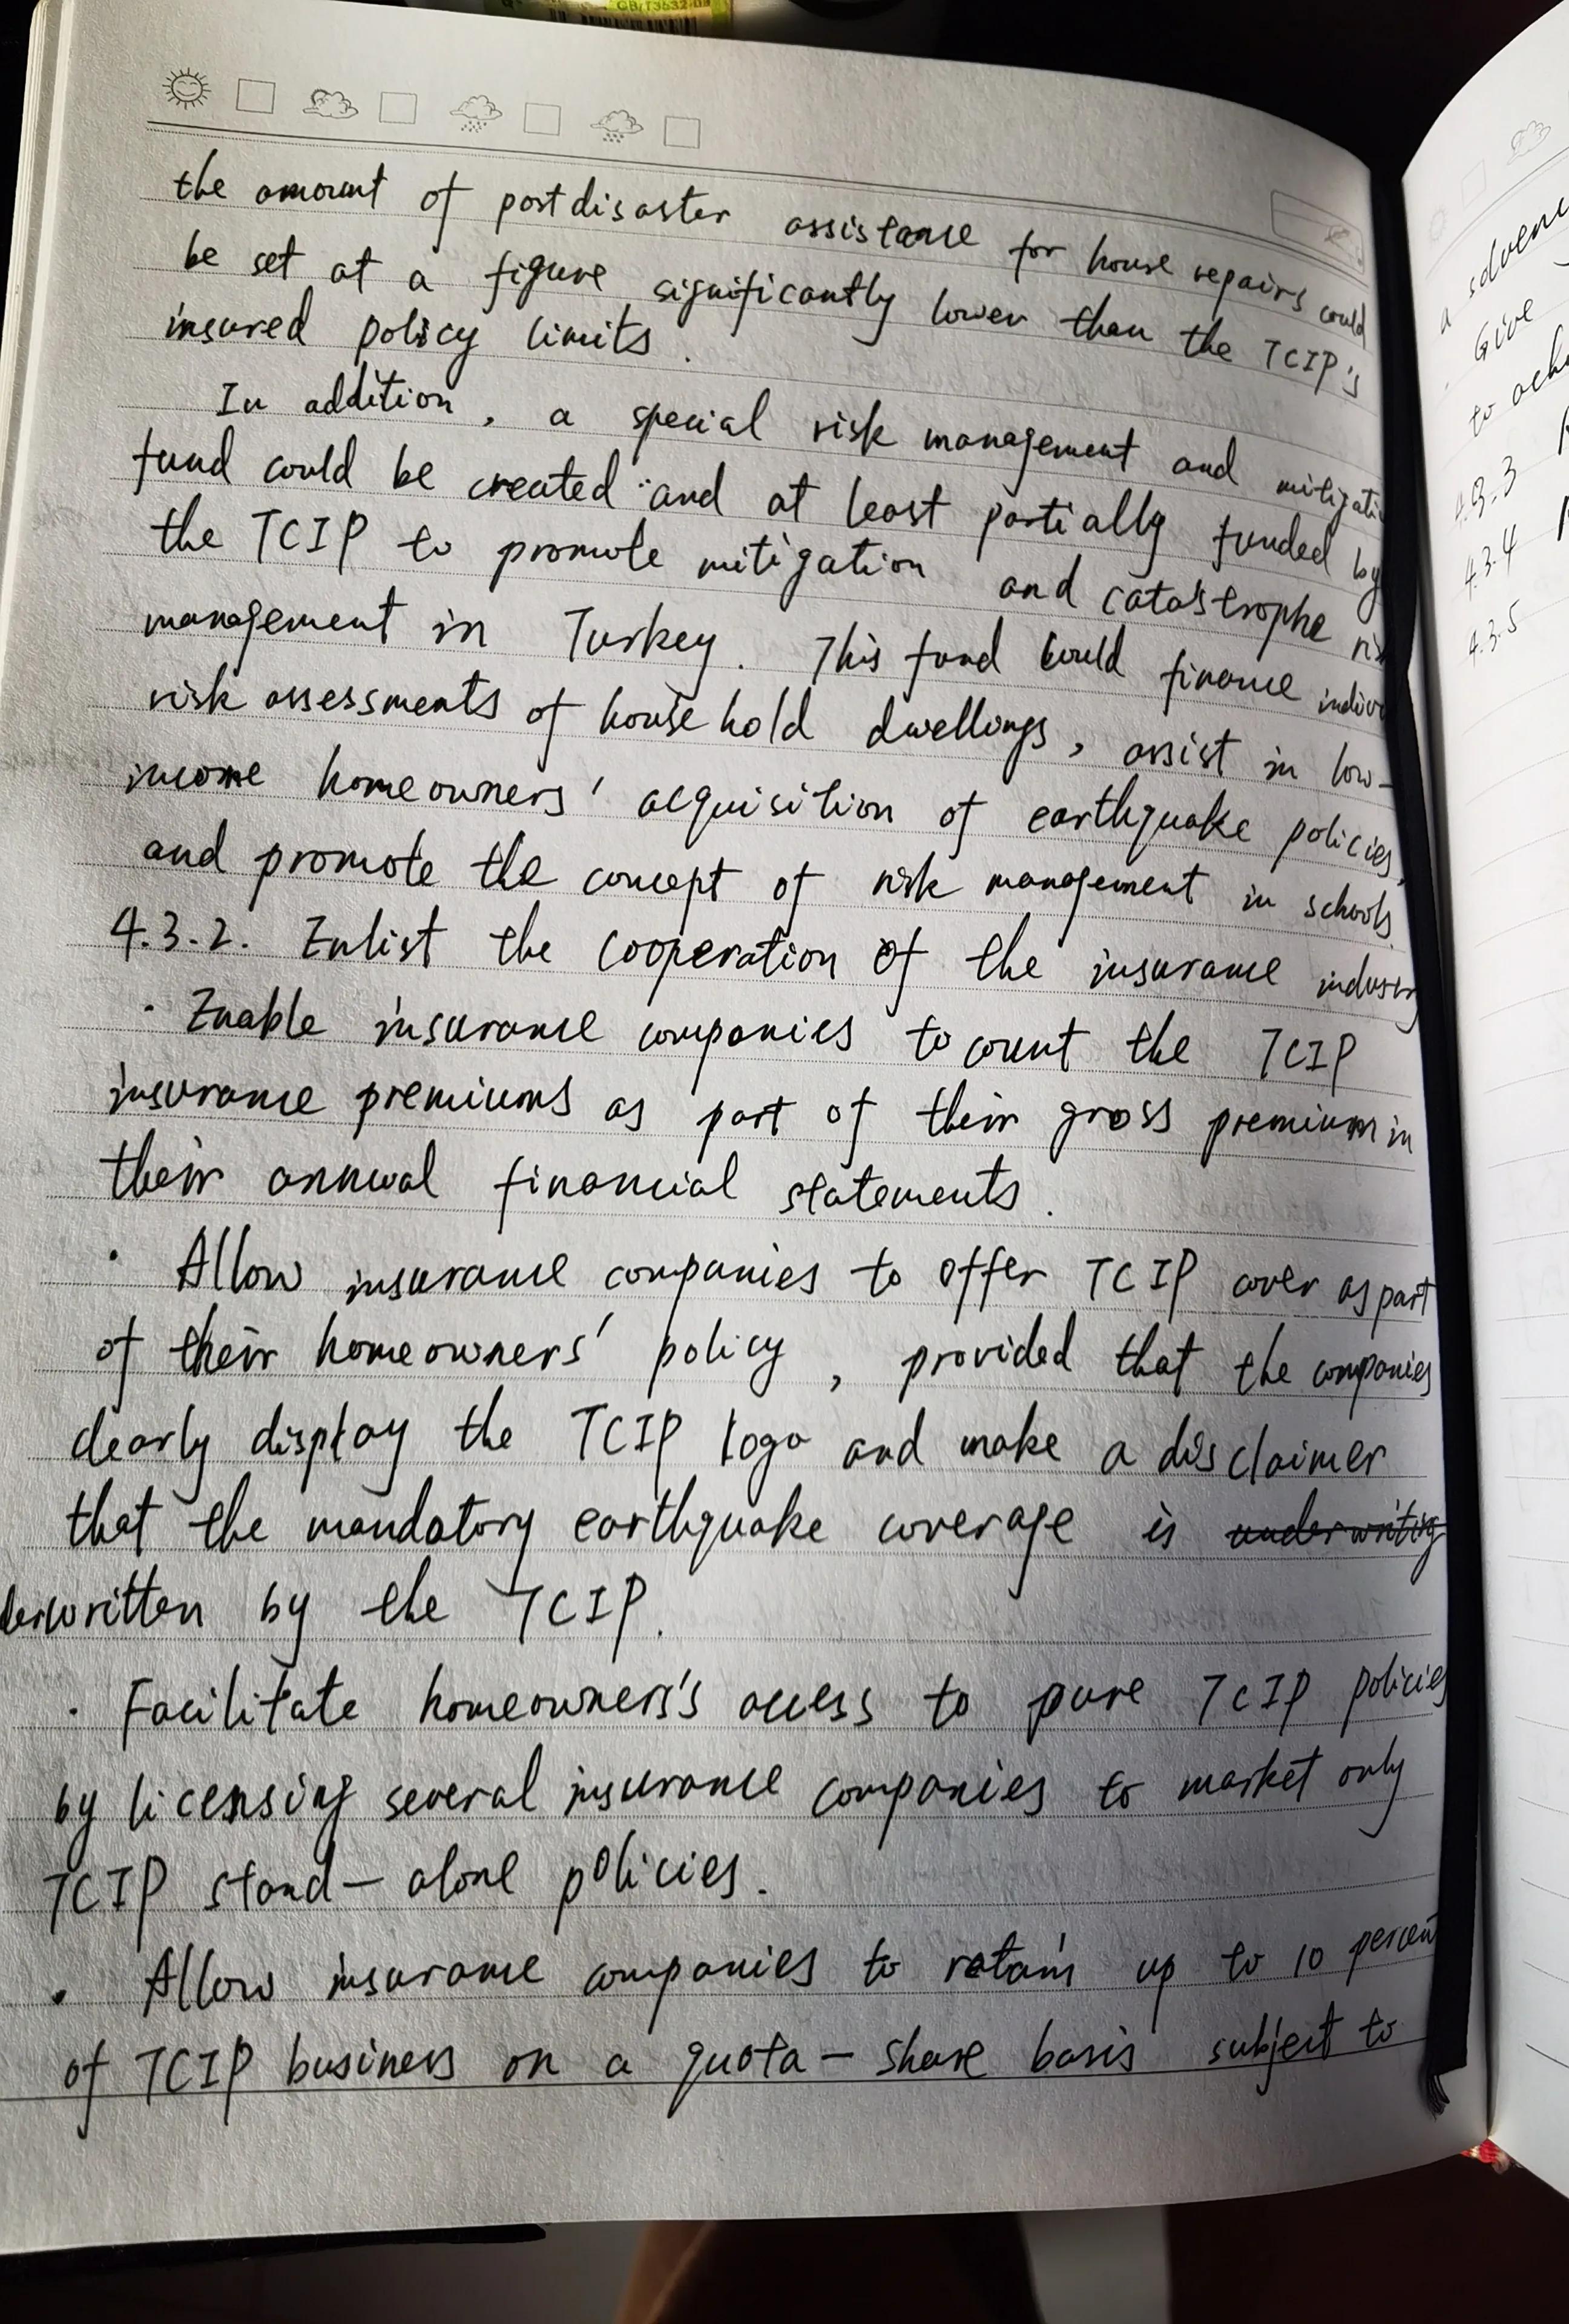 GB/T3532
the amount of postdisaster assistance for house repairs could
be set at a figure significantly lower than the TCIP's
insured policy limits.
In addition, a special risk management and mitigati
fund could be created and at least partially funded by
the TCIP to promote mitigation and catastrophe ris
management in Turkey. This fund could finance indivi
risk assessments of household dwellings, assist in low-
income homeowners' acquisition of earthquake policies,
and promote the concept of risk management in schools.
4.3.2. Enlist the cooperation of the insurance industry
· Enable insurance companies to count the TCIP
insurance premiums as part of their gross premium in
their annual financial statements.
· Allow insurance companies to offer TCIP cover as part
of their homeowners' policy, provided that the companies
clearly display the TCIP logo and make a disclaimer
that the mandatory earthquake coverage is underwriting
derwritten by the TCIP.
· Facilitate homeowners's access to pure TCIP policies
by licensing several insurance companies to market only
TCIP stand-alone policies.
· Allow insurance companies to retain up to 10 percent
of TCIP business on a quota-share basis subject to
a solvenc
· Give
to achi
4.3.3
4.3.4
4.3.5